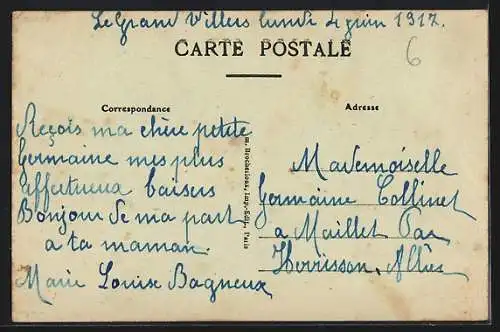 Le Grand Villers lundi 4 juin 1917.
6
CARTE POSTALE
Correspondance
Adresse
Reçois ma chère petite
Germaine mes plus
affectueux baisers
Bonjour de ma part
a ta maman.
Marie Louise Bagneux
Imp.-Edit., Paris
Mademoiselle
Germaine Collinet
a Maillet Par
Herrisson. Allier